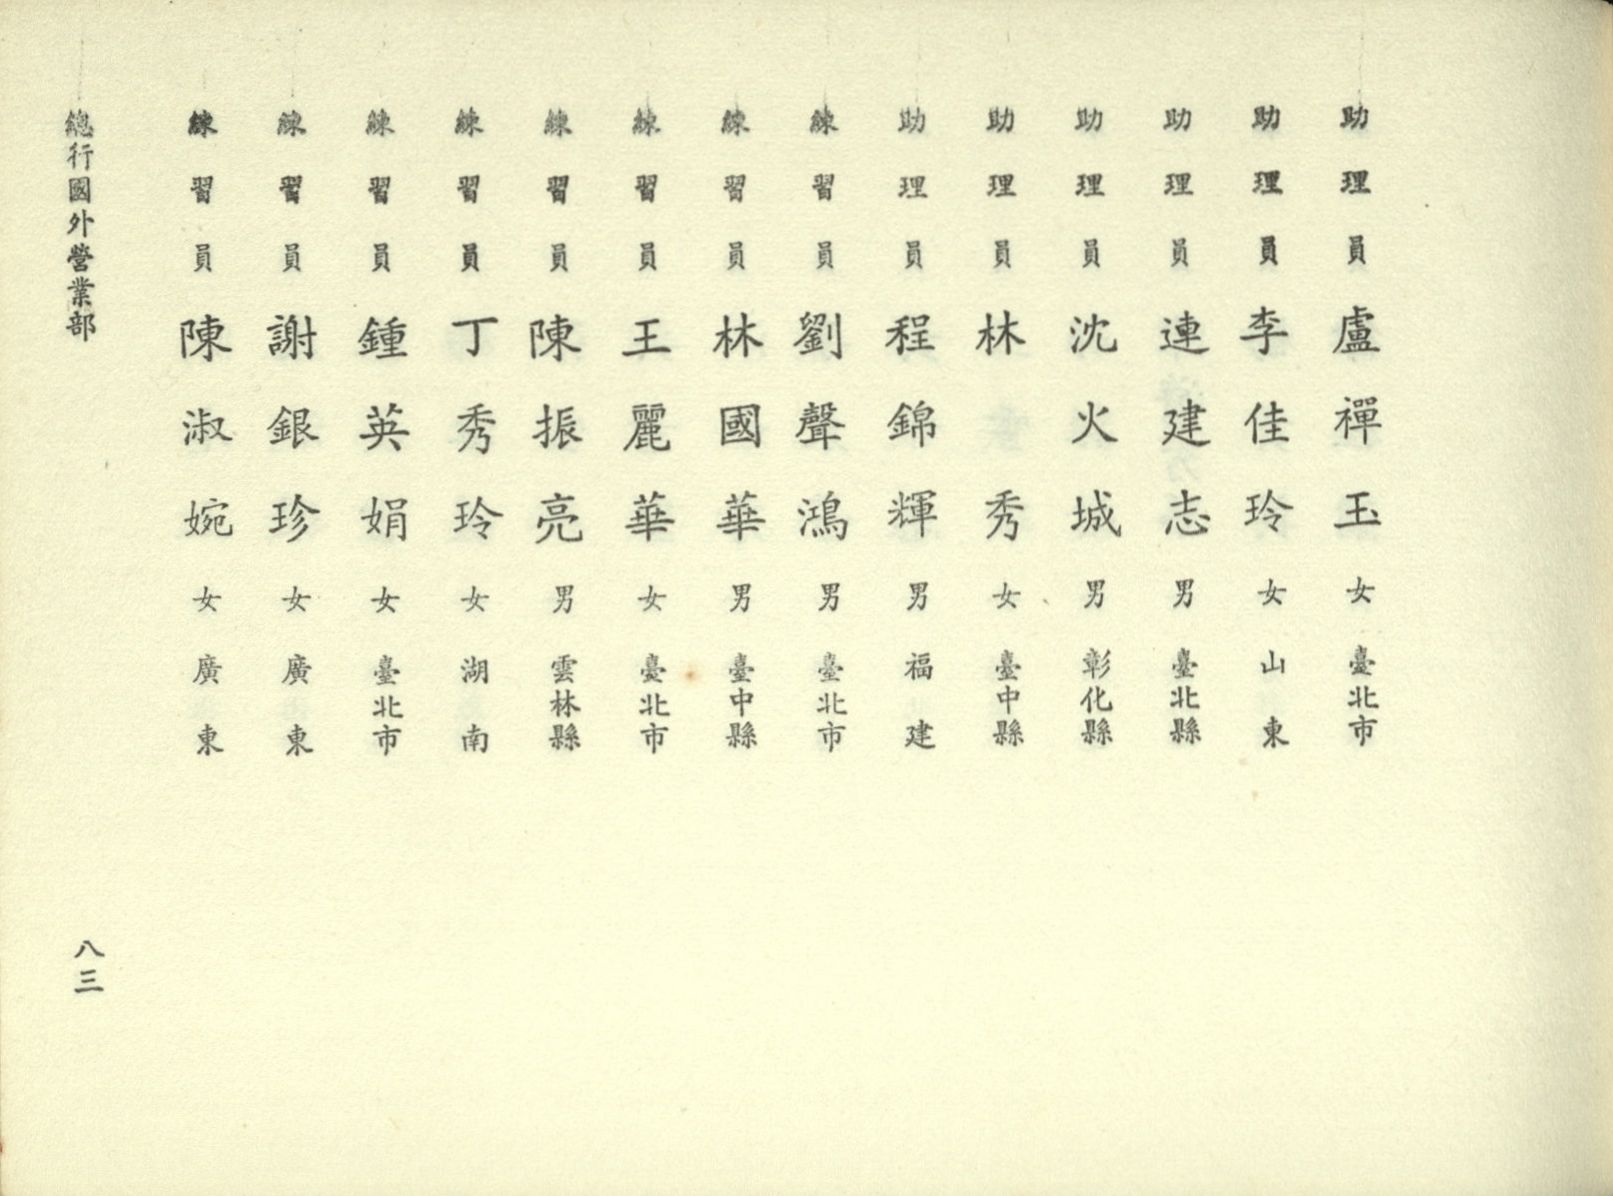 助理員盧禪玉女臺北市
助理員李佳玲女山東
助理員連建志男臺北縣
助理員沈火城男彰化縣
助理員林秀女臺中縣
助理員程錦輝男福建
練習員劉聲鴻男臺北市
練習員林國華男臺中縣
練習員王麗華女臺北市
練習員陳振亮男雲林縣
練習員丁秀玲女湖南
練習員鍾英娟女臺北市
練習員謝銀珍女廣東
練習員陳淑婉女廣東
總行國外營業部
八三